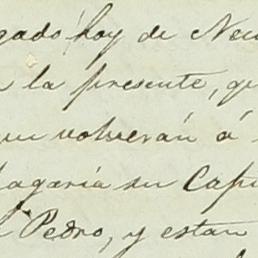 gado hoy de New
la presente, qu
que volverán á
lagaria su Capi
Pedro, y estan